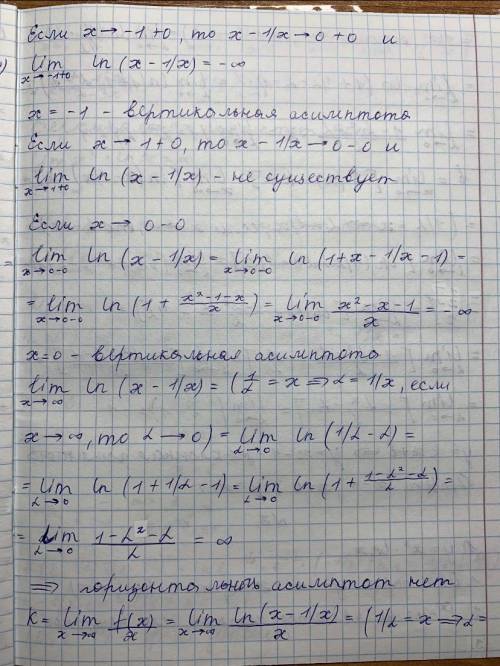 Если x → -1+0, то x - 1/x → 0+0 и
lim x→-1+0 ln (x - 1/x) = -∞
x = -1 - вертикальная асимптота
Если x → 1+0, то x - 1/x → 0-0 и
lim x→1+0 ln (x - 1/x) - не существует
Если x → 0-0
= lim x→0-0 ln (x - 1/x) = lim x→0-0 ln (1 + x - 1/x - 1) =
= lim x→0-0 ln (1 + (x² - 1 - x)/x) = lim x→0-0 (x² - x - 1)/x = -∞
x=0 - вертикальная асимптота
lim x→∞ ln (x - 1/x) = (1/α = x ⟹ α = 1/x, если
x → ∞, то α → 0) = lim α→0 ln (1/α - α) =
= lim α→0 ln (1 + 1/α - 1) = lim α→0 ln (1 + (1 - α² - α)/α) =
= lim α→0 (1 - α² - α)/α = ∞
⟹ горизонтальных асимптот нет
K = lim x→∞ f(x)/x = lim x→∞ ln (x - 1/x)/x = (1/α = x ⟹ α =